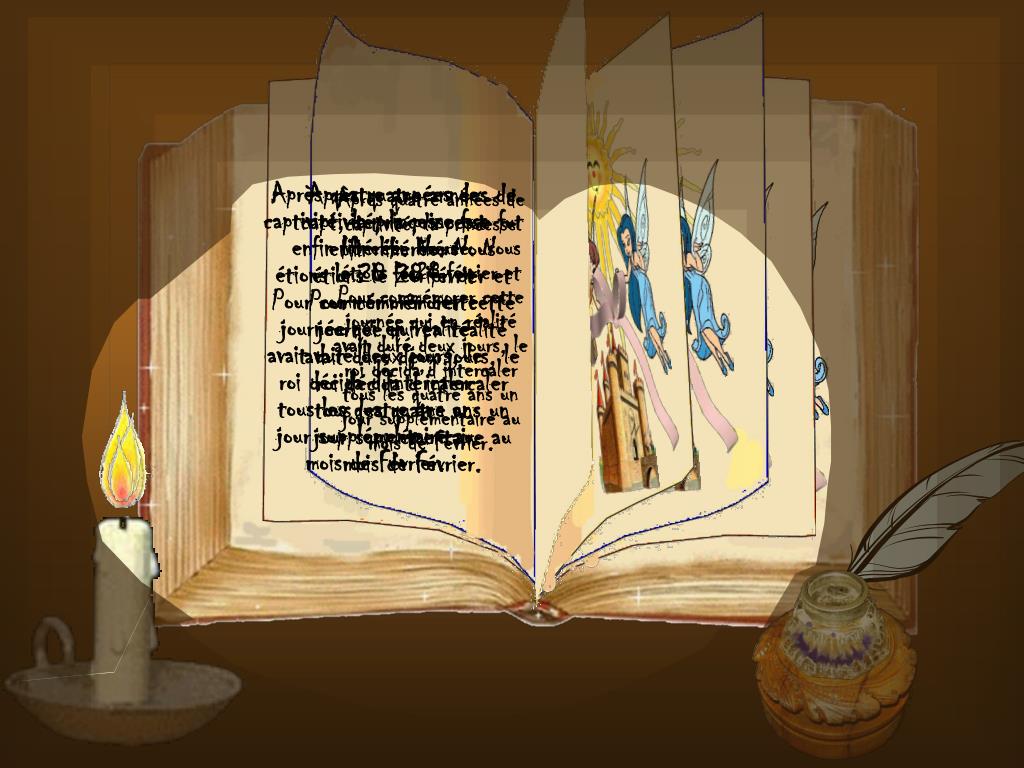 Après quatre années de
captivité, la princesse fut
enfin libérée. Nous
étions le 28 février et
Pour commémorer cette
journée qui en réalité
avait duré deux jours, le
roi décida d'intercaler
tous les quatre ans un
jour supplémentaire au
mois de février.